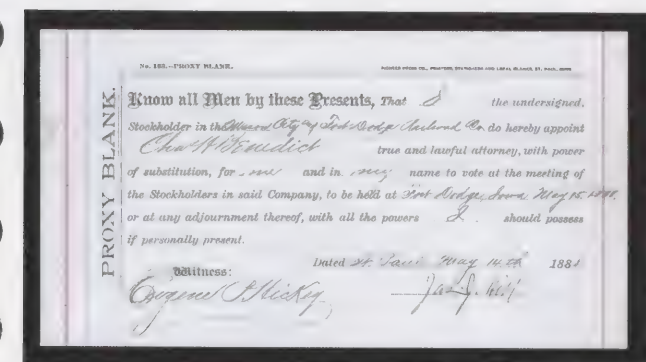 No. 188.—PROXY BLANK. PIONEER PRESS CO., PRINTERS, STATIONERS AND LEGAL BLANKS, ST. PAUL, MINN.
PROXY BLANK.
Know all Men by these Presents, That I the undersigned,
Stockholder in the Mason City & Fort Dodge Railroad Co. do hereby appoint
Chas H Benedict true and lawful attorney, with power
of substitution, for me and in my name to vote at the meeting of
the Stockholders in said Company, to be held at Fort Dodge, Iowa, May 15
or at any adjournment thereof, with all the powers I should possess
if personally present.
Dated St. Paul May 14th 188
Witness:
Eugene Hickey Jas. J. Hill